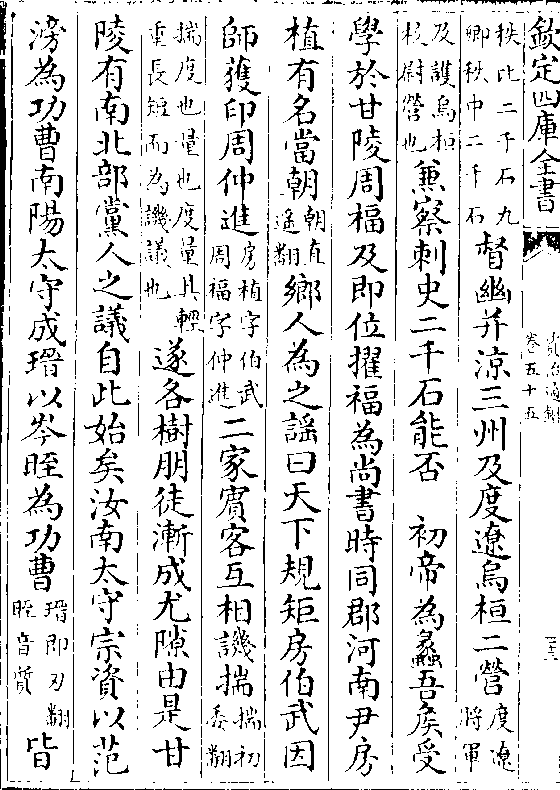 欽定四庫全書
資治通鑑
卷五十五
秩比二千石九
卿秩中二千石
督幽并涼三州及度遼烏桓二營
度遼
將軍
及護烏桓
校尉營也
兼察刺史二千石能否 初帝為蠡吾侯受
學於甘陵周福及即位擢福為尚書時同郡河南尹房
植有名當朝
朝直
遙翻
鄉人為之謡曰天下規矩房伯武因
師獲印周仲進
房植字伯武
周福字仲進
二家賓客互相譏揣
揣初
委翻
揣度也量也度量其輕
重長短而為譏議也
遂各樹朋徒漸成尤隙由是甘
陵有南北部黨人之議自此始矣汝南太守宗資以范
滂為功曹南陽太守成瑨以岑晊為功曹
瑨即刃翻
晊音質
皆